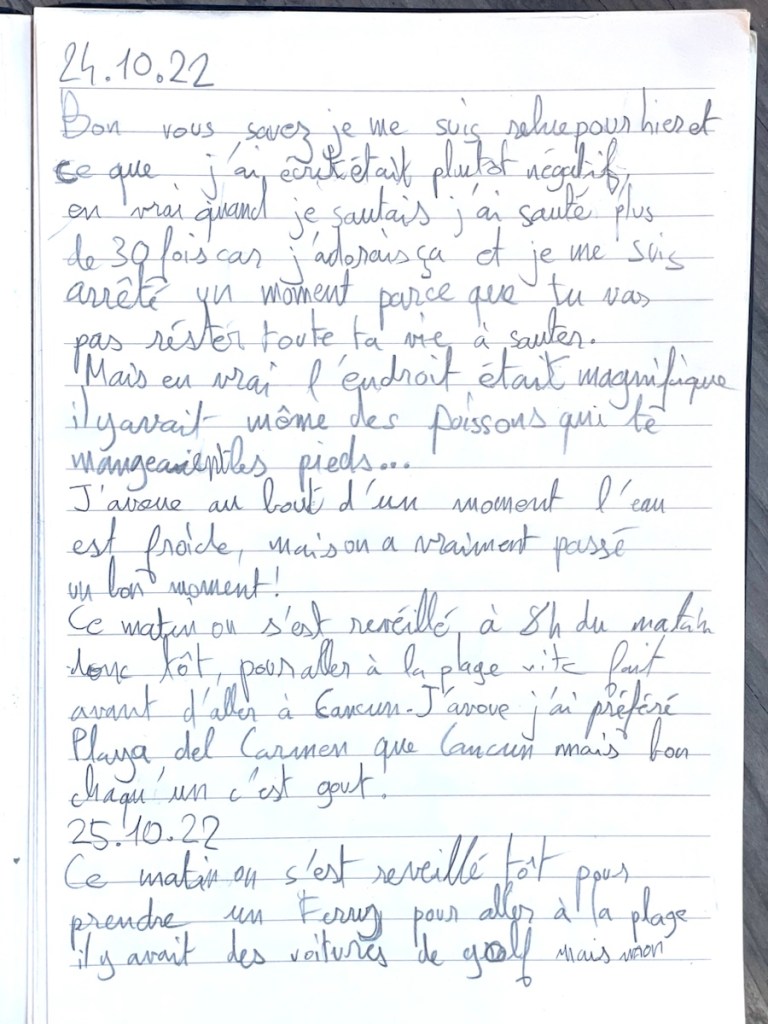 24.10.22
Bon vous savez je me suis relue pour hier et
ce que j'ai écrit était plutot négatif,
en vrai quand je sautais j'ai sauté plus
de 30 fois car j'adorais ça et je me suis
arrêté un moment parce que tu vas
pas réster toute ta vie à sauter.
Mais en vrai l'endroit était magnifique
il y avait même des poissons qui te
mangeaient les pieds...
J'avoue au bout d'un moment l'eau
est froide, mais on a vraiment passé
un bon moment!
Ce matin on s'est reveillé à 8h du matin
donc tôt, pour aller à la plage vite fait
avant d'aller à Cancun. J'avoue j'ai préféré
Playa del Carmen que Cancun mais bon
chaqu'un c'est gout.
25.10.22
Ce matin on s'est reveillé tôt pour
prendre un Ferry pour aller à la plage
il y avait des voitures de golf mais mon